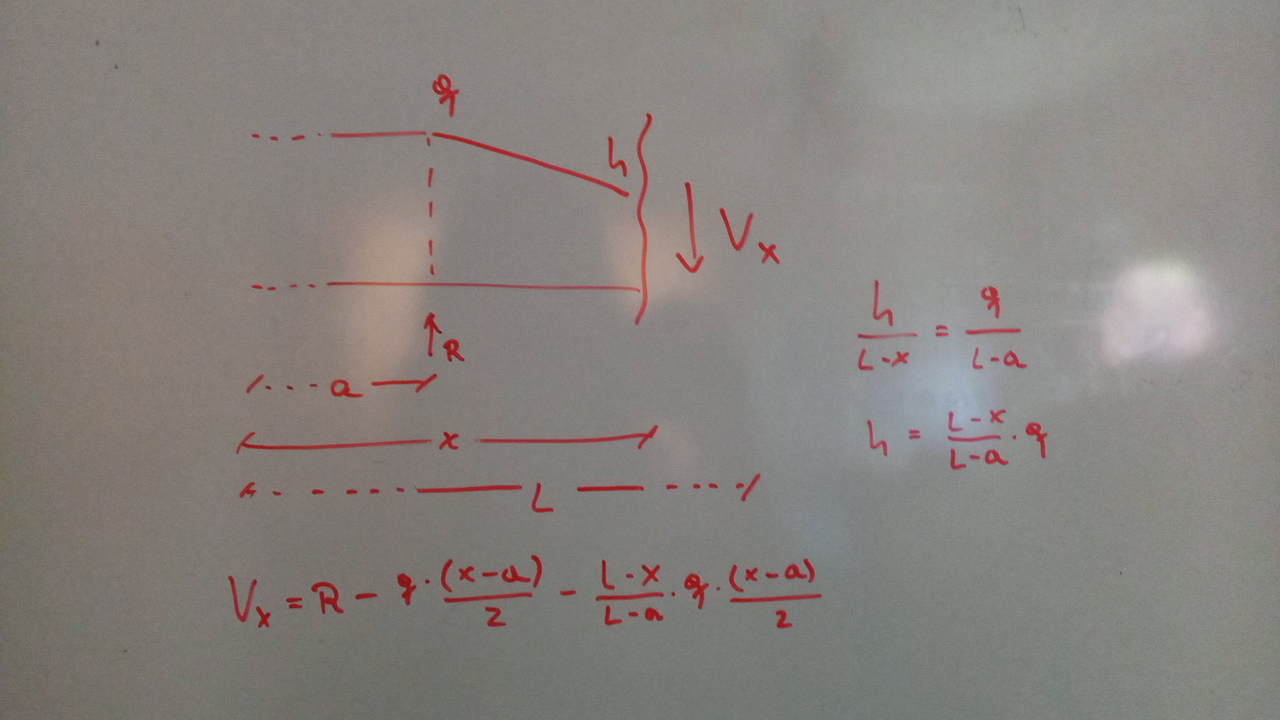 q
h
V_x
R
a
x
L
h/(L-x) = q/(L-a)
h = (L-x)/(L-a) · q
V_x = R - q · (x-a)/2 - (L-x)/(L-a) · q · (x-a)/2